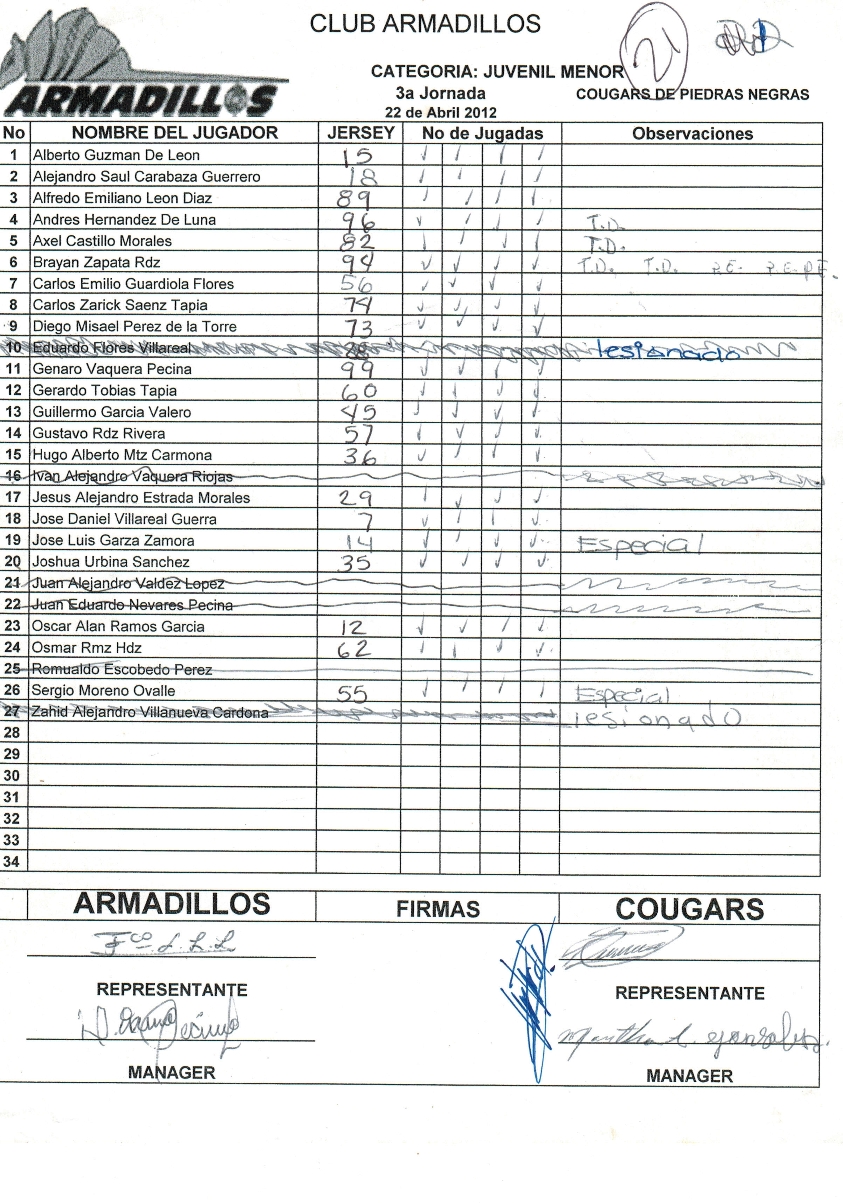 CLUB ARMADILLOS
21
ARMADILLOS
CATEGORIA: JUVENIL MENOR
3a Jornada
COUGARS DE PIEDRAS NEGRAS
22 de Abril 2012
No NOMBRE DEL JUGADOR JERSEY No de Jugadas Observaciones
1 Alberto Guzman De Leon 15 ✓ ✓ ✓ ✓
2 Alejandro Saul Carabaza Guerrero 18 ✓ ✓ ✓ ✓
3 Alfredo Emiliano Leon Diaz 89 ✓ ✓ ✓ ✓
4 Andres Hernandez De Luna 96 ✓ ✓ ✓ ✓ T.D.
5 Axel Castillo Morales 82 ✓ ✓ ✓ ✓ T.D.
6 Brayan Zapata Rdz 94 ✓ ✓ ✓ ✓ T.D. T.D. P.E. P.E. P.E.
7 Carlos Emilio Guardiola Flores 56 ✓ ✓ ✓ ✓
8 Carlos Zarick Saenz Tapia 74 ✓ ✓ ✓ ✓
9 Diego Misael Perez de la Torre 73 ✓ ✓ ✓ ✓
10 Eduardo Flores Villareal 88 lesionado
11 Genaro Vaquera Pecina 99 ✓ ✓ ✓ ✓
12 Gerardo Tobias Tapia 60 ✓ ✓ ✓ ✓
13 Guillermo Garcia Valero 45 ✓ ✓ ✓ ✓
14 Gustavo Rdz Rivera 57 ✓ ✓ ✓ ✓
15 Hugo Alberto Mtz Carmona 36 ✓ ✓ ✓ ✓
16 Ivan Alejandro Vaquera Riojas
17 Jesus Alejandro Estrada Morales 29 ✓ ✓ ✓ ✓
18 Jose Daniel Villareal Guerra 7 ✓ ✓ ✓ ✓
19 Jose Luis Garza Zamora 14 ✓ ✓ ✓ ✓ Especial
20 Joshua Urbina Sanchez 35 ✓ ✓ ✓ ✓
21 Juan Alejandro Valdez Lopez
22 Juan Eduardo Nevares Pecina
23 Oscar Alan Ramos Garcia 12 ✓ ✓ ✓ ✓
24 Osmar Rmz Hdz 62 ✓ ✓ ✓ ✓
25 Romualdo Escobedo Perez
26 Sergio Moreno Ovalle 55 ✓ ✓ ✓ ✓ Especial
27 Zahid Alejandro Villanueva Cardona lesionado
28
29
30
31
32
33
34
ARMADILLOS FIRMAS COUGARS
Fco L.L.L
REPRESENTANTE REPRESENTANTE
Martha
MANAGER MANAGER